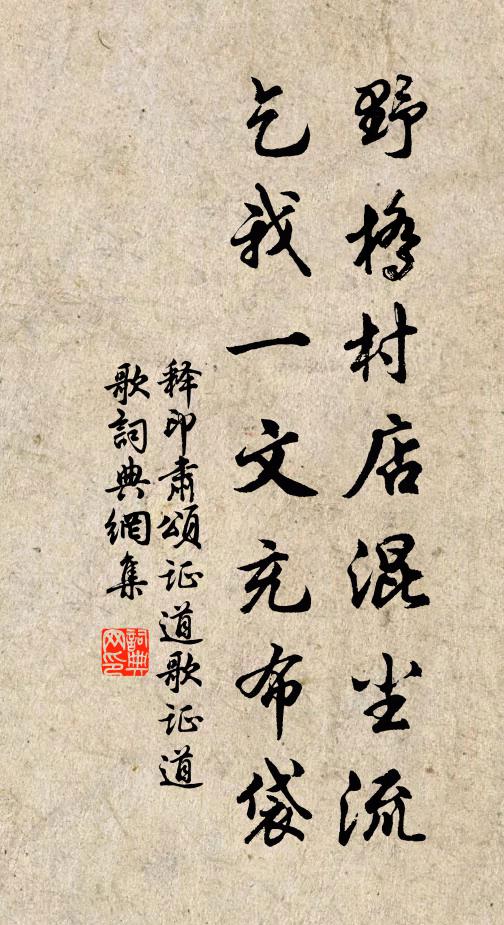 野橋村店混尘流
乞我一文充布袋
释印肃頌证道歌证道
歌詞典網集
詞典
网印